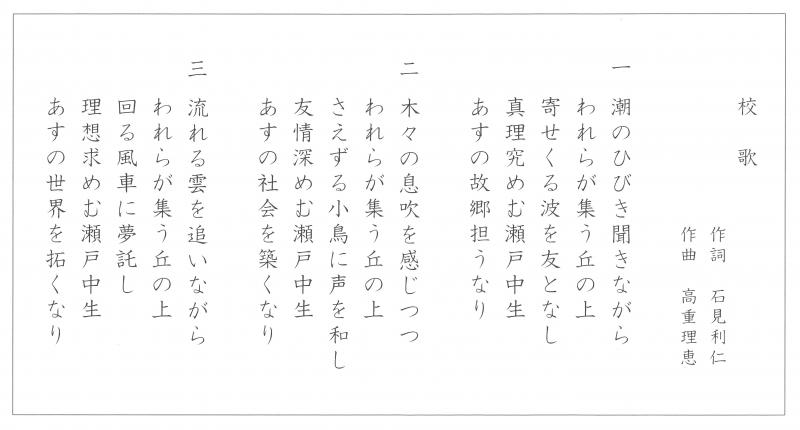 校歌
作詞 石見利仁
作曲 高重理恵
一 潮のひびき聞きながら
われらが集う丘の上
寄せくる波を友となし
真理究めむ瀬戸中生
あすの故郷担うなり
二 木々の息吹を感じつつ
われらが集う丘の上
さえずる小鳥に声を和し
友情深めむ瀬戸中生
あすの社会を築くなり
三 流れる雲を追いながら
われらが集う丘の上
回る風車に夢託し
理想求めむ瀬戸中生
あすの世界を拓くなり